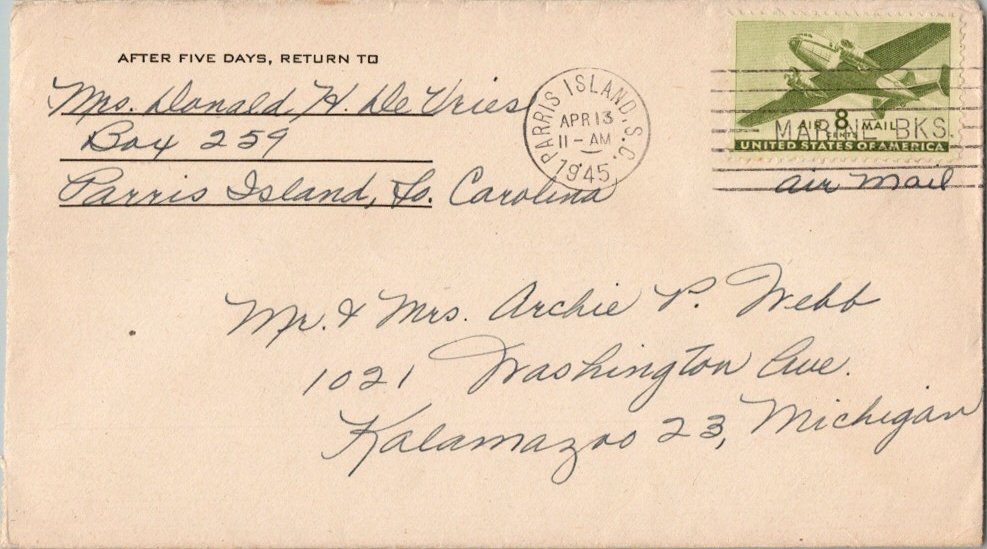 AFTER FIVE DAYS, RETURN TO
Mrs. Donald H. De Vries
Box 259
Parris Island, So. Carolina
PARRIS ISLAND, S.C.
APR 13
11 - AM
1945
AIR 8 MAIL
CENTS
UNITED STATES OF AMERICA
MARINE BKS.
air mail
Mr. & Mrs. Archie P. Webb
1021 Washington Ave.
Kalamazoo 23, Michigan